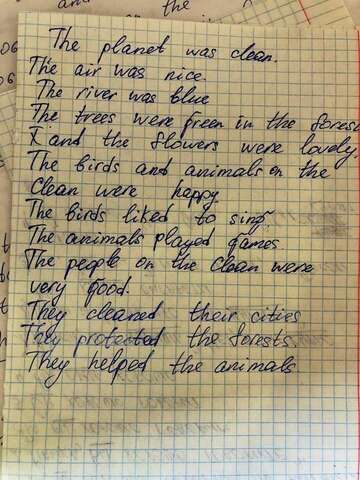 The planet was clean.
The air was nice.
The river was blue
The trees were green in the forest
and the flowers were lovely
The birds and animals on the
clean were happy.
The birds liked to sing.
The animals played games.
The people on the clean were
very good.
They cleaned their cities
They protected the forests.
They helped the animals